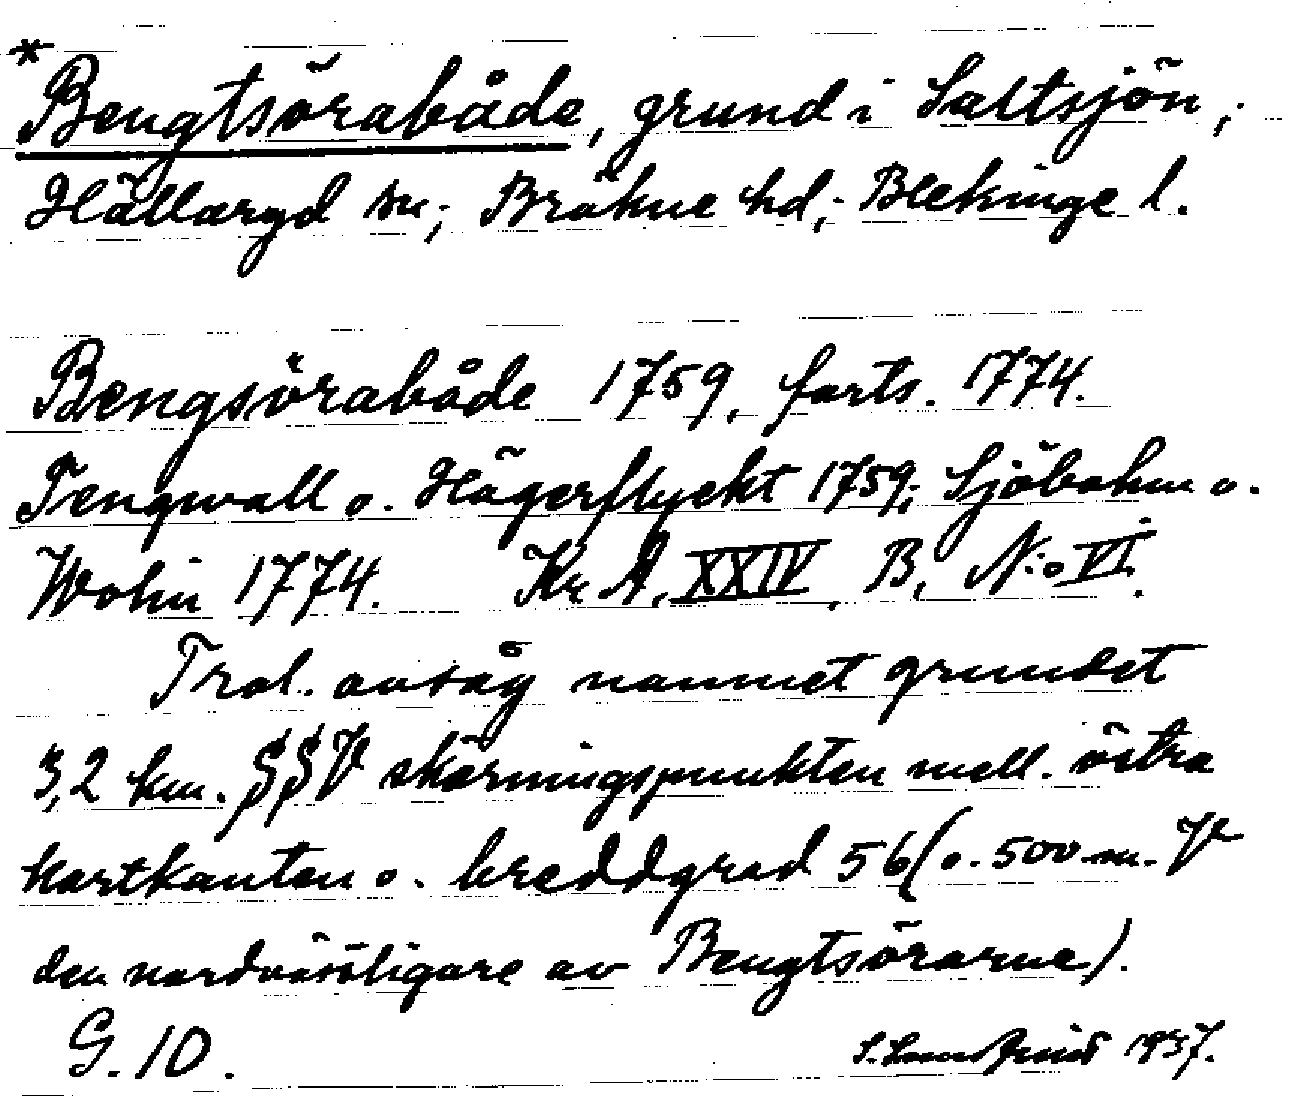 *Bengtsörabåde, grund i Saltsjön,
Hällaryd sn, Bräkne hd, Blekinge l.
Bengsörabåde 1759, forts. 1774.
Tengwall o. Hägerflycht 1759; Sjöbohm o.
Wohin 1774. Kr. A. XXIV, B, N:o VI.
Trol. avsåg namnet grundet
3,2 km. SSV skärningspunkten mell. östra
kartkanten o. breddgrad 56 (o. 500 m. V
den nordvästligare av Bengtsörarne).
G. 10. 1937.